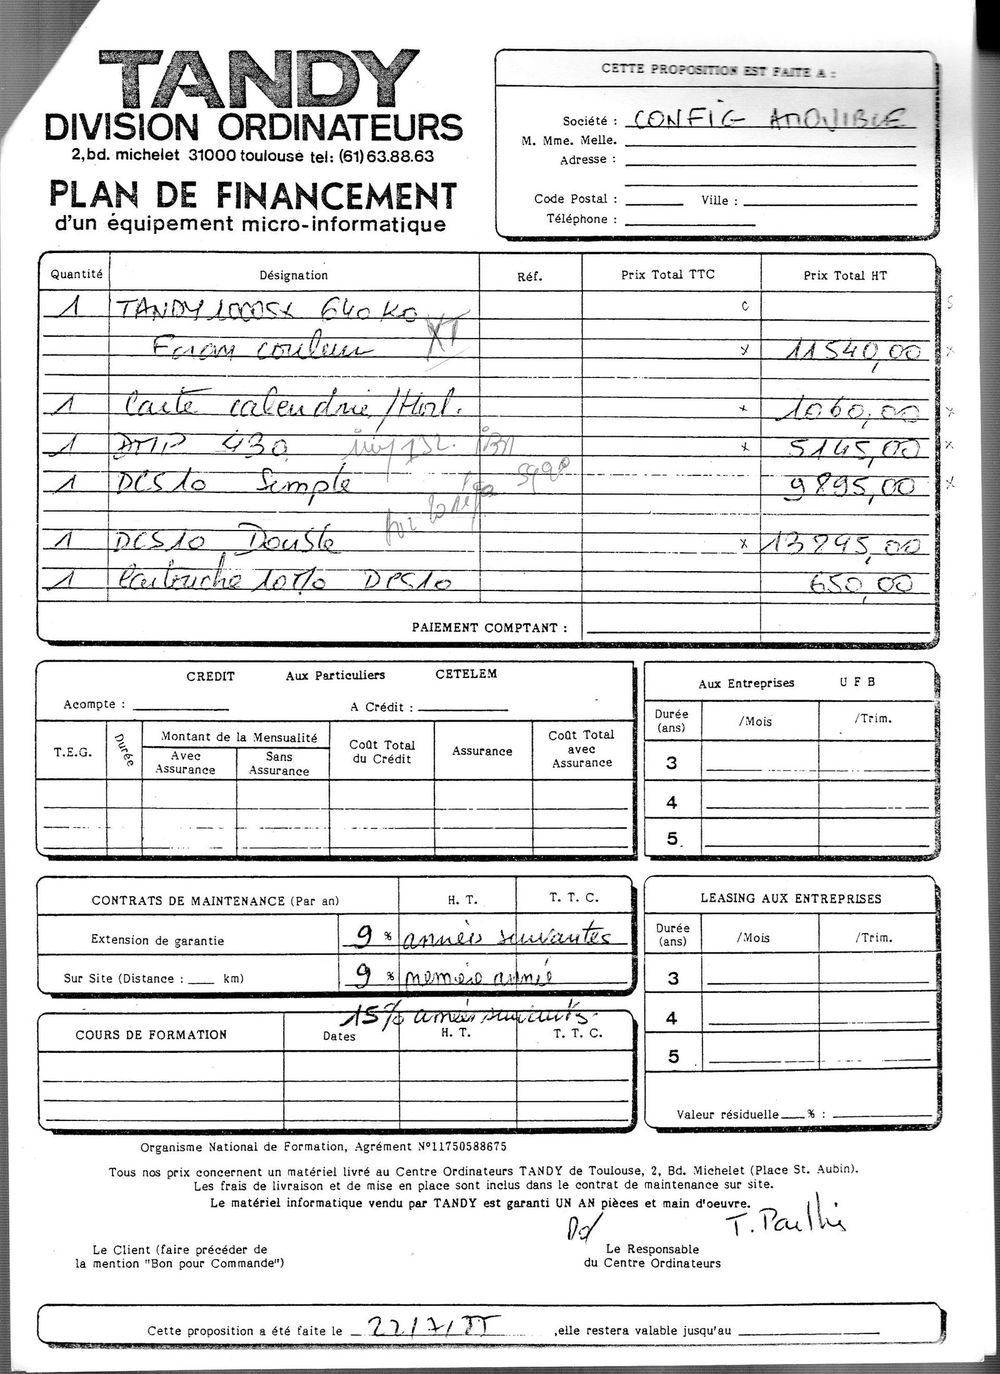 TANDY
DIVISION ORDINATEURS
2,bd. michelet 31000 toulouse tel: (61) 63.88.63
PLAN DE FINANCEMENT
d'un équipement micro-informatique
CETTE PROPOSITION EST FAITE A :
Société : CONFIG AMOVIBLE
M. Mme. Melle.
Adresse :
Code Postal : Ville :
Téléphone :
Quantité Désignation Réf. Prix Total TTC Prix Total HT
1 TANDY 1000SX 640 Ko
Ecran couleur XT 11540,00
1 Carte calendrie/Horl. 1060,00
1 DMP 430 5145,00
1 DCS10 Simple 9895,00
1 DCS10 Double 13995,00
1 Cartouche 10Mo DCS10 650,00
PAIEMENT COMPTANT :
CREDIT Aux Particuliers CETELEM
Acompte : A Crédit :
T.E.G. Durée Montant de la Mensualité Coût Total du Crédit Assurance Coût Total avec Assurance
Avec Assurance Sans Assurance
Aux Entreprises U F B
Durée (ans) /Mois /Trim.
3
4
5
CONTRATS DE MAINTENANCE (Par an) H. T. T. T. C.
Extension de garantie 9 % années suivantes
Sur Site (Distance : ___ km) 9 % première année
15% années suivants.
COURS DE FORMATION Dates H. T. T. T. C.
LEASING AUX ENTREPRISES
Durée (ans) /Mois /Trim.
3
4
5
Valeur résiduelle ___ % :
Organisme National de Formation, Agrément N°11750588675
Tous nos prix concernent un matériel livré au Centre Ordinateurs TANDY de Toulouse, 2, Bd. Michelet (Place St. Aubin).
Les frais de livraison et de mise en place sont inclus dans le contrat de maintenance sur site.
Le matériel informatique vendu par TANDY est garanti UN AN pièces et main d'oeuvre.
Le Client (faire précéder de
la mention "Bon pour Commande")
Le Responsable
du Centre Ordinateurs
Cette proposition a été faite le 22/7/ ,elle restera valable jusqu'au